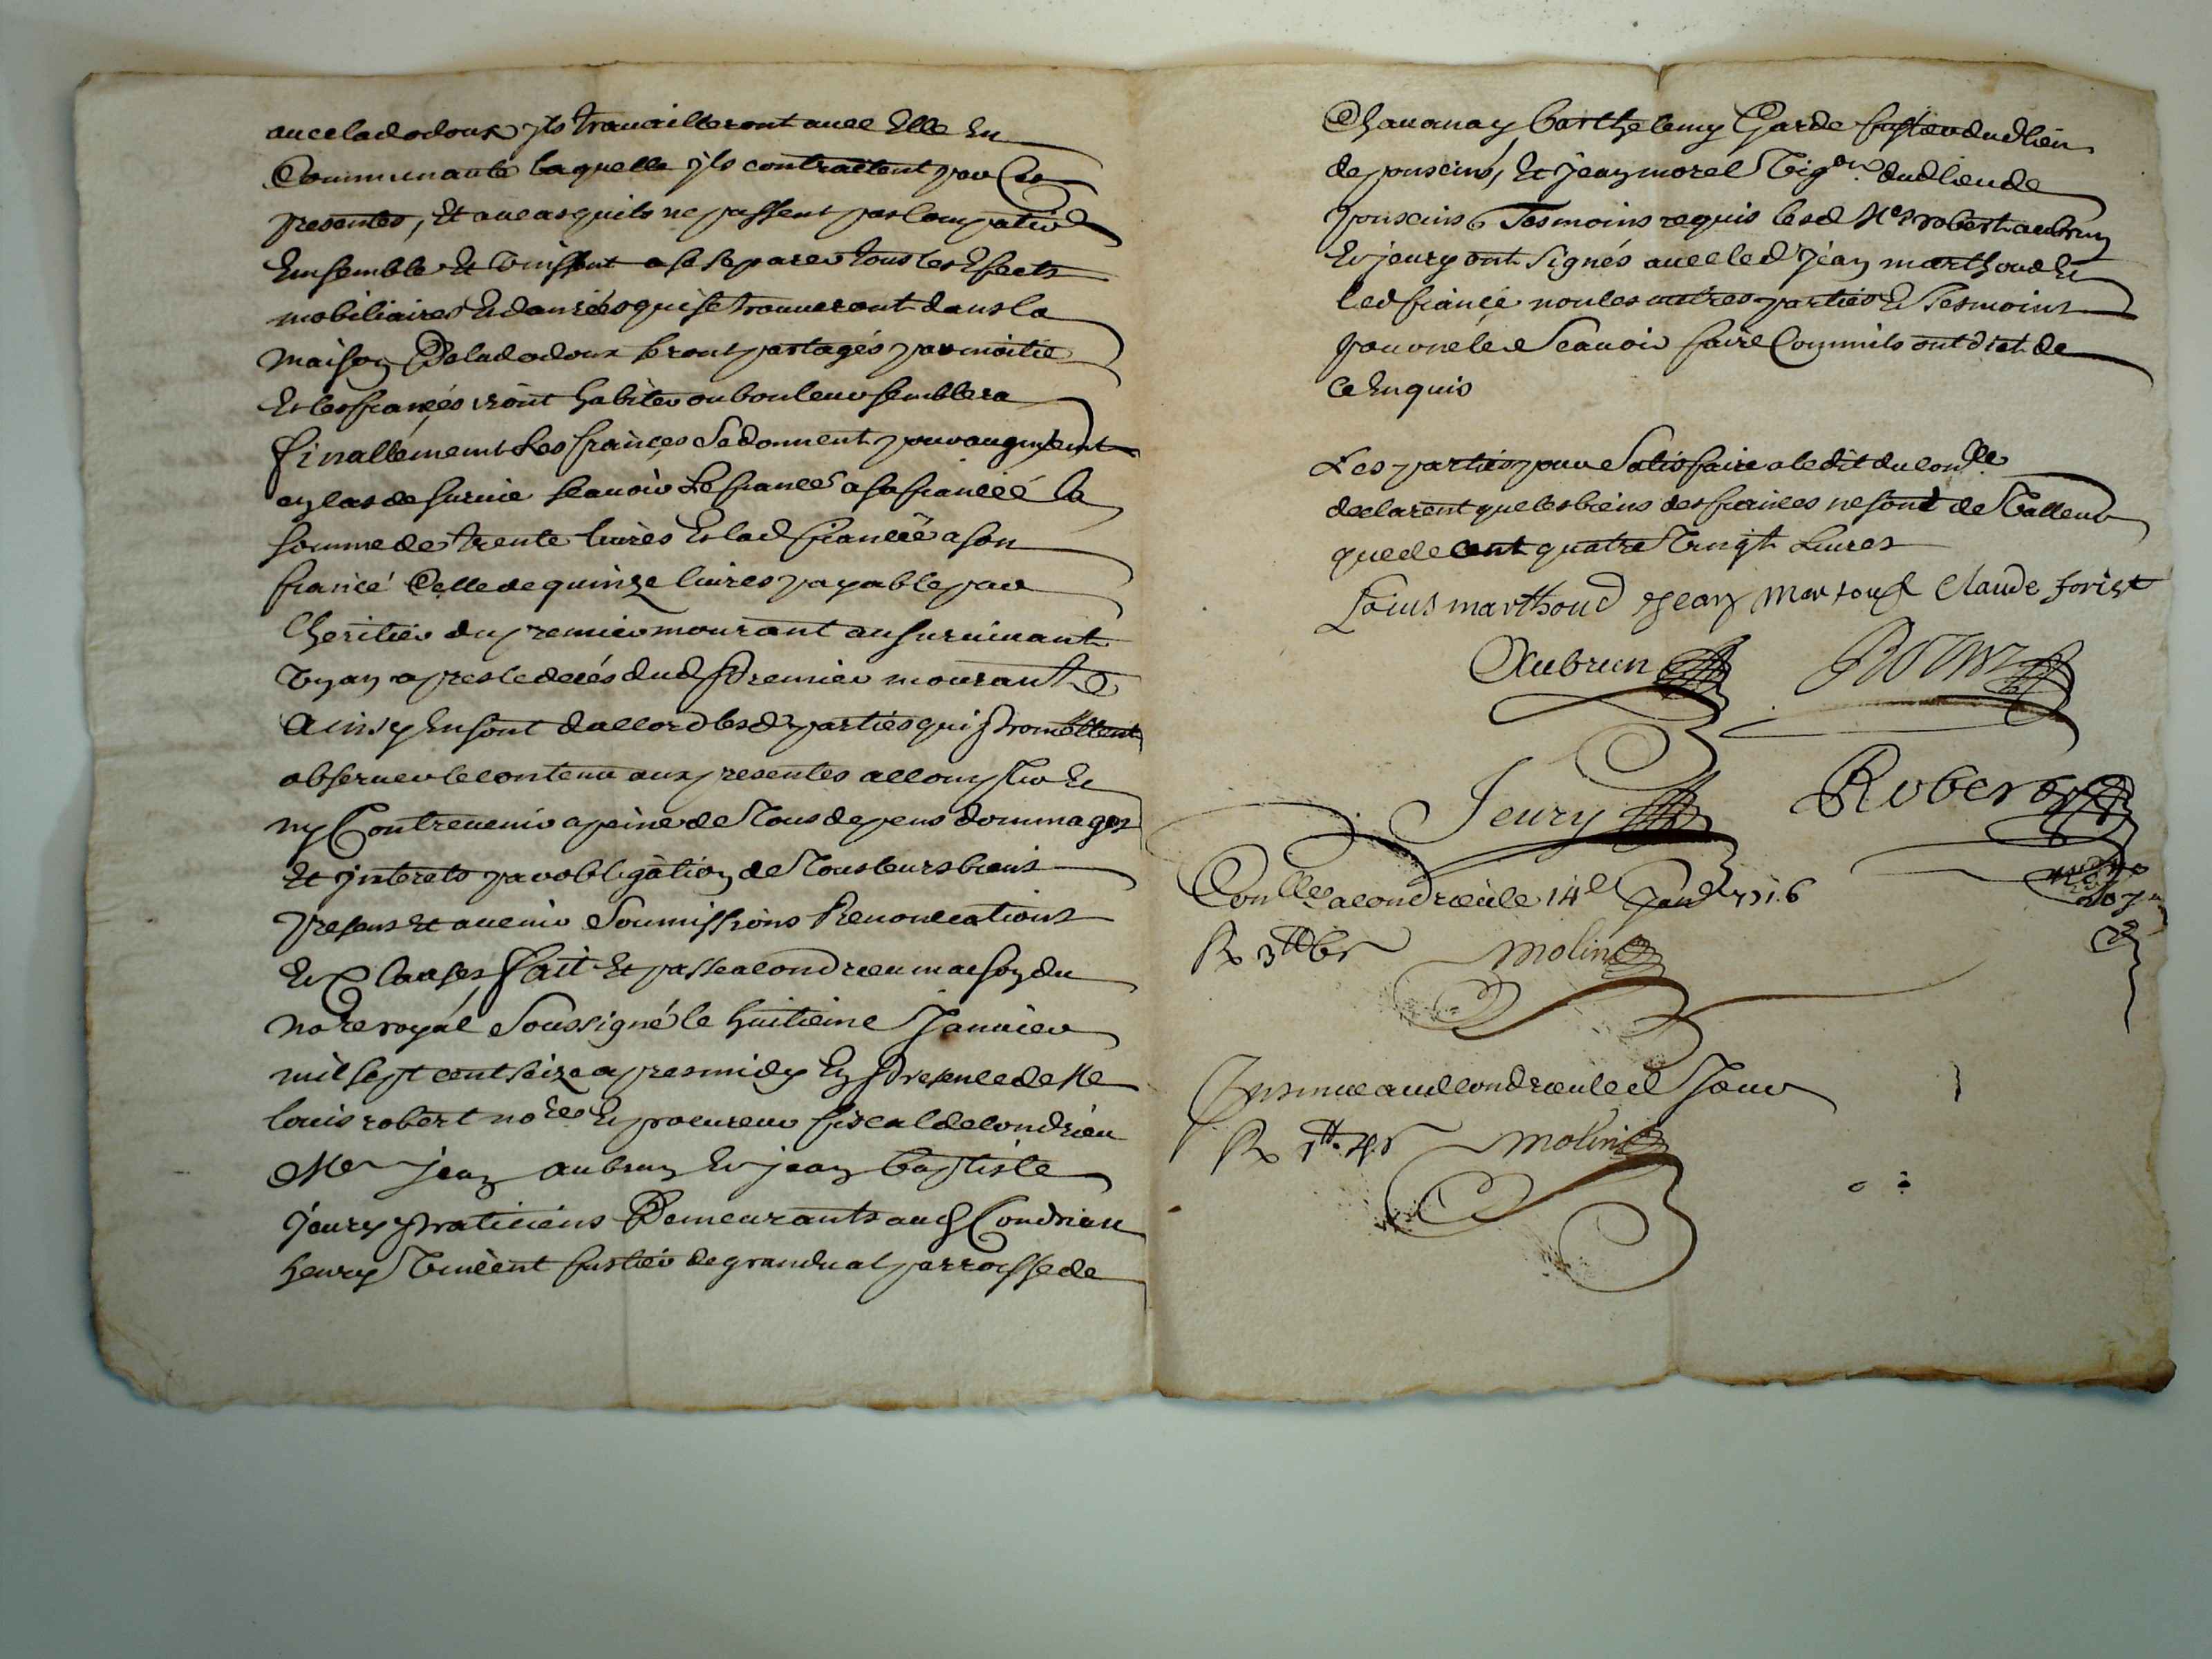 avec lad odoux ils travailleront avec Elle En
Communauté laquelle ils contractent par Ces
presentes, Et aucas quils ne puissent pas compatir
Ensemble Et vinssent a se separer tous les Efects
mobiliaires Et danrées qui se trouveront dans la
maison De lad odoux seront partagés par moitie
Et les fiancés iront habiter ou bon leur semblera
finallement Les fiances Se donnent pour augment
en cas de survie scavoir Le fiancé a sa fiancéé la
somme de trente livres Et lad fiancéé a son
fiancé Celle de quinze livres payable par
l'heritier du premier mourant au survivant
un an apres le decés dud premier mourant
Ainsy En sont d'accord lesd parties qui promettent
observer le contenu aux presentes accomplir Et
ny Contrevenir a peine de Tous depens dommages
Et interets par obligation de Tous leurs biens
presens Et avenir Soumissions Renonciations
Et Clauses, fait Et passe a condrieu maison du
no.re royal Soussigné le huitieme Janvier
mil sept cent seize apres midy En presence de Me
louis robert no.re Et procureur fiscal de condrieu
Me jean aubrun Et jean baptiste
jeury praticiens Demeurants aud Condrieu
henry Vincent fustier de grandval parroisse de
Chavanay, barthelemy Garde fustier dud lieu
de pouscins, Et jean morel Vig.on dud lieu de
pouscins Tesmoins requis lesd Mes robert aubrun
Et jeury ont Signés avec led jean marthoud Et
led fiancé non les autres parties Et Tesmoins
pour ne le Scavoir faire Comm'ils ont dict de
ce Enquis
Les parties pour Satisfaire a ledit du con.lle
declarent que les biens des fiances ne sont de Valleur
que de cent quatre Vingt Livres
Loius marthoud Jean martoud Claude forist
Aubrun
Jeury Robert
Con.llé a condrieu le 14e Janv 1716
R 3tt 6s Molin
Insinué aud condrieu led Jour
R 1tt 4s Molin